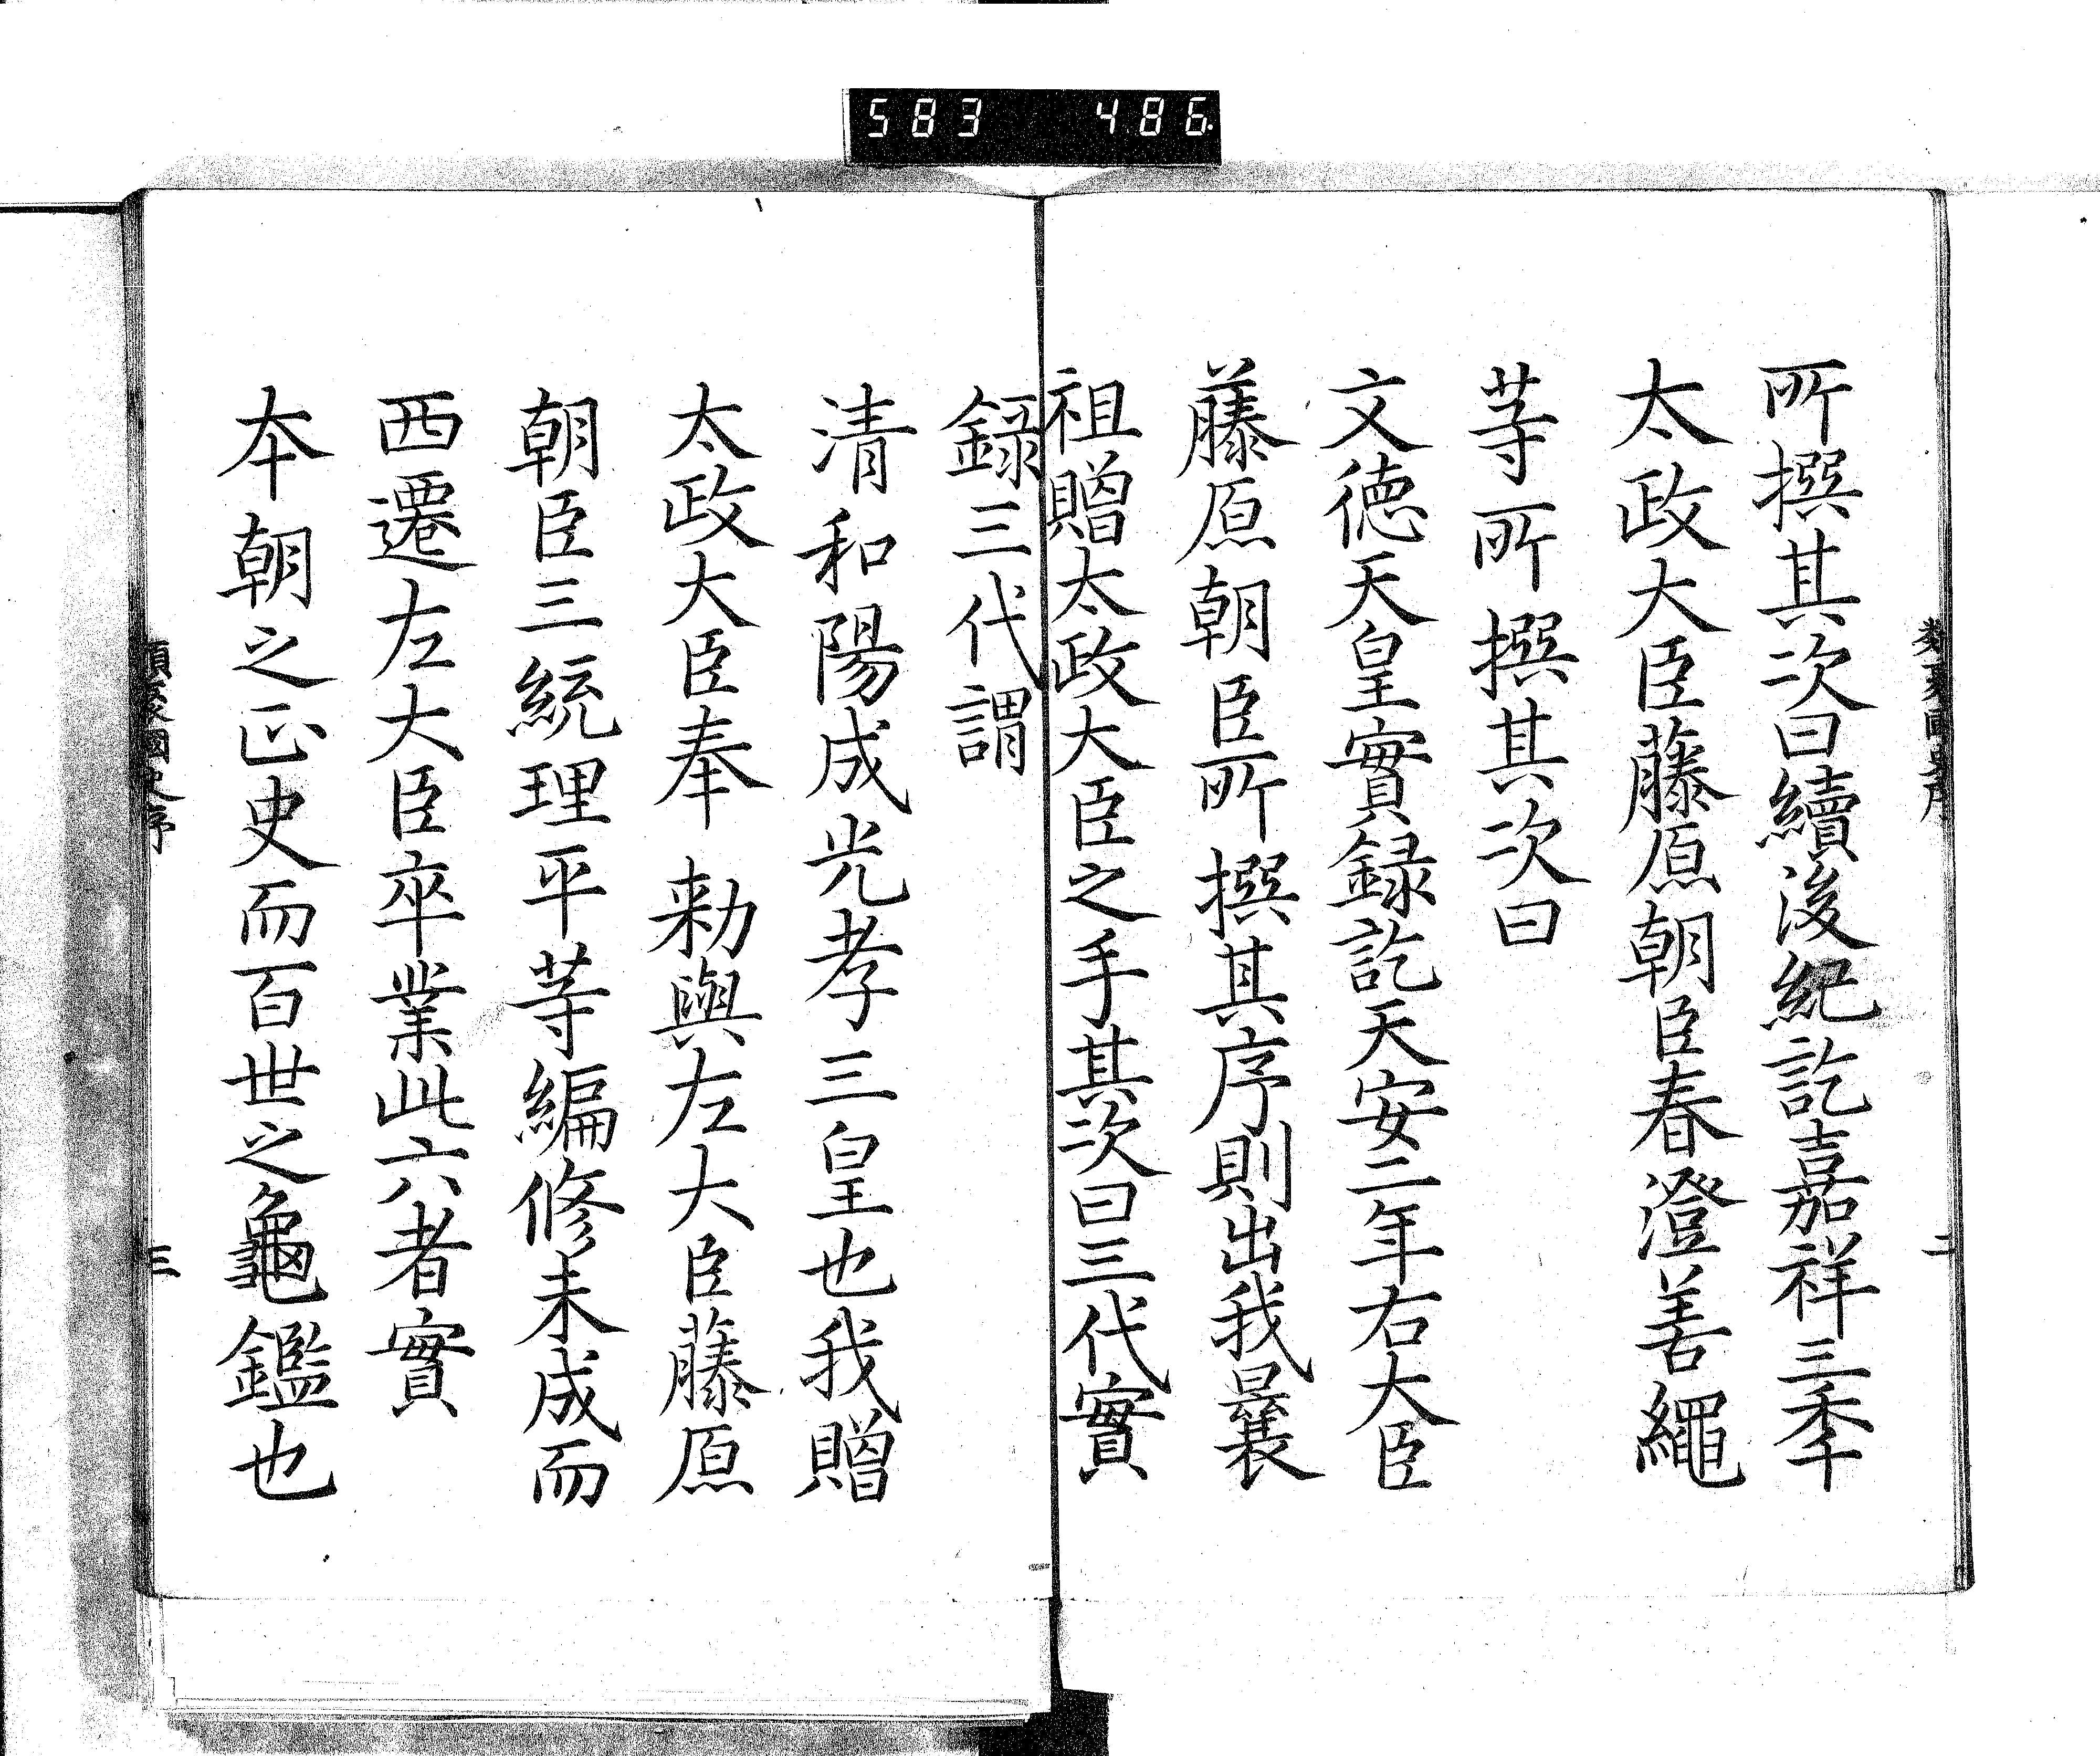 583 486
類聚國史序
二
所撰其次曰續後紀訖嘉祥三季
太政大臣藤原朝臣春澄善繩
等所撰其次曰
文徳天皇實録訖天安二年右大臣
藤原朝臣所撰其序則出我曩
祖贈太政大臣之手其次曰三代實
録三代謂
清和陽成光孝三皇也我贈
太政大臣奉 勅與左大臣藤原
朝臣三統理平等編修未成而
西遷左大臣卒業此六者實
本朝之正史而百世之龜鑑也
類聚國史序
三